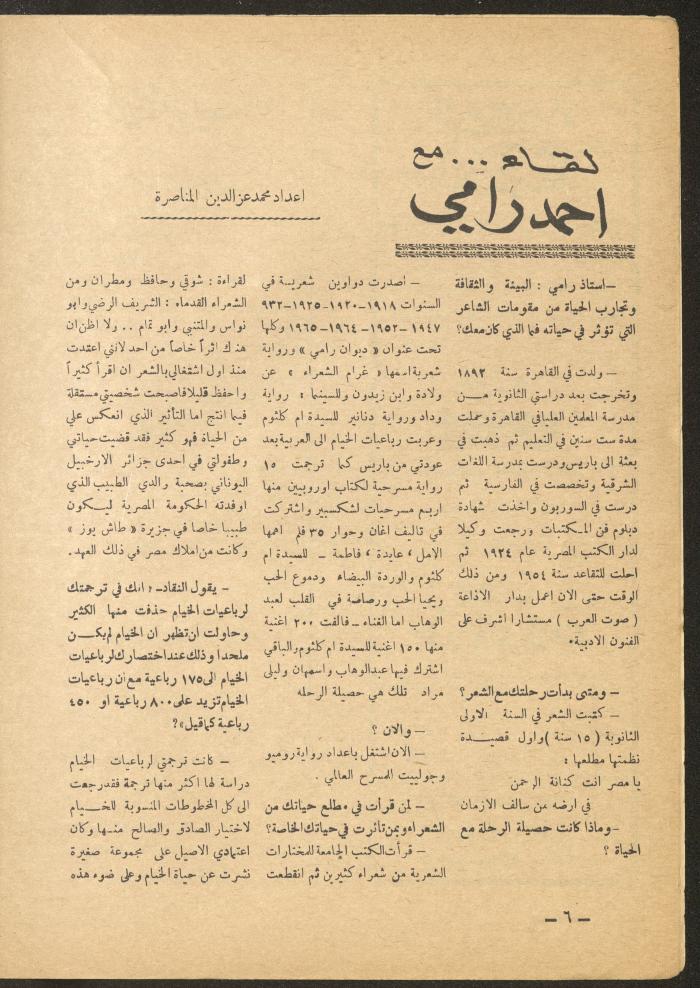 لقاء ... مع
احمد رامي
اعداد محمد عزالدين المناصرة
— استاذ رامي : البيئة والثقافة
وتجارب الحياة من مقومات الشاعر
التي تؤثر في حياته فما الذي كان معك؟
— ولدت في القاهرة سنة ١٨٩٢
وتخرجت بعد دراستي الثانوية مــن
مدرسة المعلمين العليا في القاهرة وعملت
مدة ست سنين في التعليم ثم ذهبت في
بعثة الى باريس ودرست بمدرسة اللغات
الشرقية وتخصصت في الفارسية ثم
درست في السوربون واخذت شهادة
دبلوم فن المـكتبات ورجعت وكيلا
لدار الكتب المصرية عام ١٩٢٤ ثم
احلت للتقاعد سنة ١٩٥٤ ومن ذلك
الوقت حتى الان اعمل بدار الاذاعة
( صوت العرب ) مستشارا اشرف على
الفنون الادبية.
— ومتى بدأت رحلتك مع الشعر؟
— كتبت الشعر في السنة الاولى
الثانوية ( ١٥ سنة ) واول قصيــدة
نظمتها مطلعها :
يا مصر انت كنانة الرحمن
في ارضه من سالف الازمان
— وماذا كانت حصيلة الرحلة مع
الحياة ؟
— اصدرت دواوين شعريــة في
السنوات ١٩١٨-١٩٢٠-١٩٢٥-٩٣٢
١٩٤٧-١٩٥٢-١٩٦٤-١٩٦٥ وكلها
تحت عنوان « ديوان رامي » ورواية
شعرية اسمها « غرام الشعراء » عن
ولادة وابن زيدون وللسينما : رواية
وداد ورواية دنانير للسيدة ام كلثوم
وعربت رباعيات الخيام الى العربية بعد
عودتي من باريس كما ترجمت ١٥
رواية مسرحية لكتاب اوروبيين منها
اربع مسرحيات لشكسبير واشتركت
في تاليف اغان وحوار ٣٥ فلم اهمها
الامل ، عايدة ، فاطمة — للسيدة ام
كلثوم والوردة البيضاء ودموع الحب
ويحيا الحب ورصاصة في القلب لعبد
الوهاب اما الغناء — فالفت ٢٠٠ اغنية
منها ١٥٠ اغنية للسيدة ام كلثوم والباقي
اشترك فيها عبدالوهاب واسمهان وليلى
مراد تلك هي حصيلة الرحله
— والان ؟
— الان اشتغل باعداد رواية روميو
وجولييت للمسرح العالمي .
— لمن قرأت في مطلع حياتك من
الشعراء وبمن تأثرت في حياتك الخاصة؟
— قرأت الكتب الجامعة للمختارات
الشعرية من شعراء كثيرين ثم انقطعت
لقراءة : شوقي وحافظ ومطران ومن
الشعراء القدماء : الشريف الرضي وابو
نواس والمتنبي وابو تمام .. ولا اظن ان
هنـاك اثراً خاصاً من احد لانني اعتدت
منذ اول اشتغالي بالشعر ان اقرأ كثيراً
واحفظ قليلا فاصبحت شخصيتي مستقلة
فيما انتج اما التأثير الذي انعكس علي
من الحياة فهو كثير فقد قضيت حياتي
وطفولتي في احدى جزائر الارخبيل
اليوناني بصحبة والدي الطبيب الذي
اوفدته الحكومة المصرية ليـكون
طبيبا خاصا في جزيرة « طاش يوز »
وكانت من املاك مصر في ذلك العهد.
— يقول النقاد : انك في ترجمتك
لرباعيات الخيام حذفت منها الكثير
وحاولت ان تظهر ان الخيام لم يكـن
ملحداً وذلك عند اختصارك لرباعيات
الخيام الى ١٧٥ رباعية مع ان رباعيات
الخيام تزيد على ٨٠٠ رباعية او ٤٥٠
رباعية كما قيل»؟
— كانت ترجمتي لرباعيات الخيام
دراسة لها اكثر منها ترجمة فقد رجعت
الى كل المخطوطات المنسوبة للخــيام
لاختيار الصادق والصالح منـها وكان
اعتمادي الاصيل على مجموعة صغيرة
نشرت عن حياة الخيام وعلى ضوء هذه
— ٦ —